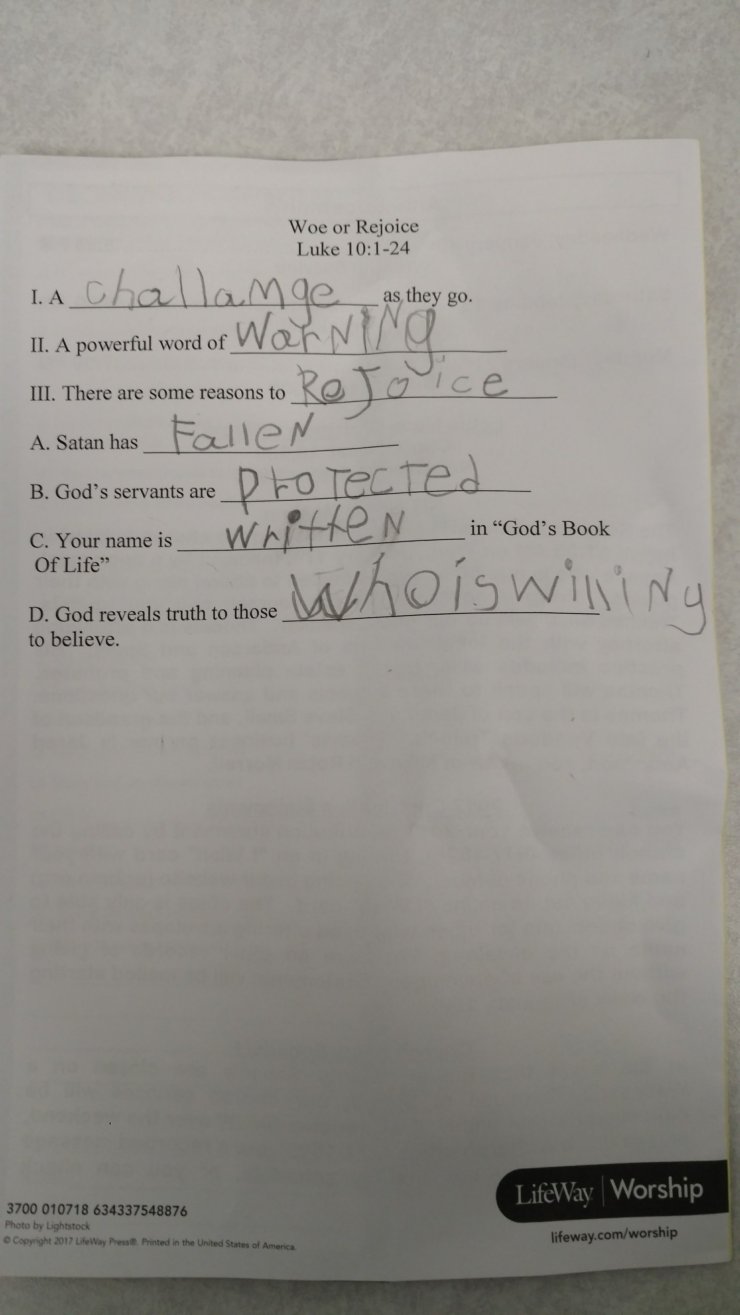 Woe or Rejoice
Luke 10:1-24
I. A challange as they go.
II. A powerful word of WarNINg
III. There are some reasons to ReJoice
A. Satan has FalleN
B. God's servants are protected
C. Your name is writteN in "God's Book
Of Life"
D. God reveals truth to those Who is williNg
to believe.
LifeWay | Worship
lifeway.com/worship
3700 010718 634337548876
Photo by Lightstock
© Copyright 2017 LifeWay Press®. Printed in the United States of America.